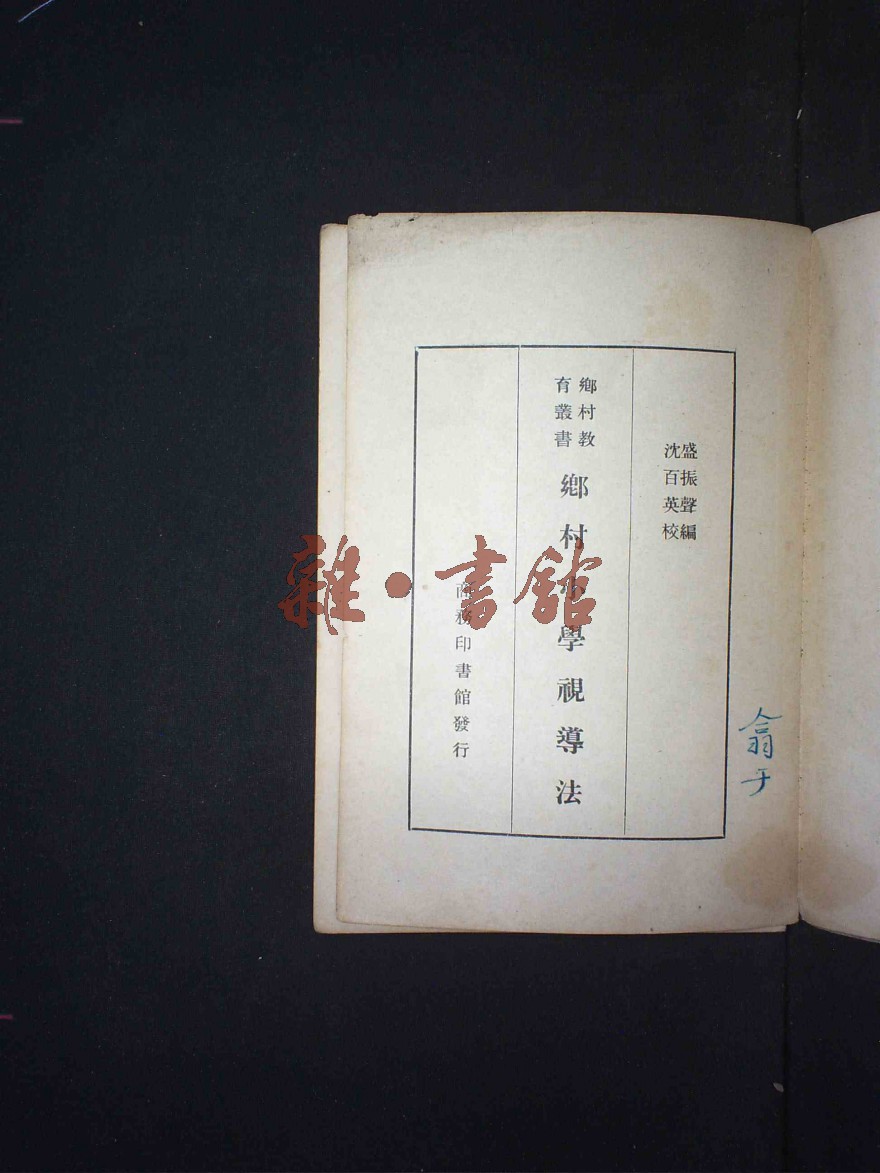 盛振聲編
沈百英校
鄉村教
育叢書
鄉村小學視導法
商務印書館發行
雜·書館